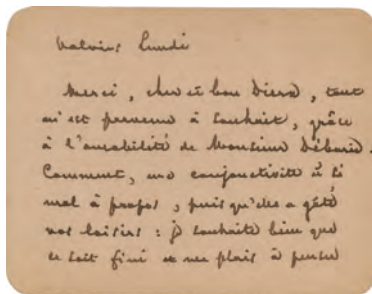 Valvins Lundi
Merci, cher et bon Dierx, tout
m'est parvenu à souhait, grâce
à l'amabilité de Monsieur
Comment, une conjonctivite si
mal à propos, puisqu'elle a gâté
vos loisirs : je souhaite bien que
ce soit fini et me plais à penser